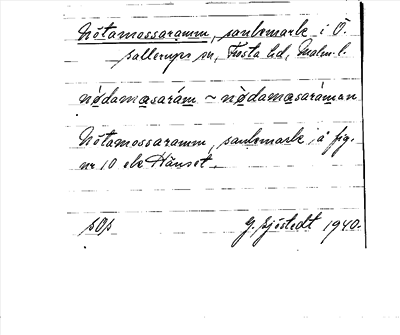 Nötamossaramm, sankmark i Ö.
Sallerups sn, Frosta hd, Malm. l.
nødamɑsarám ~ nødamɑsaráman
Nötamossaramm, sankmark å fig.
nr 10 ek Hänset.
sOs G. Sjöstedt 1940.